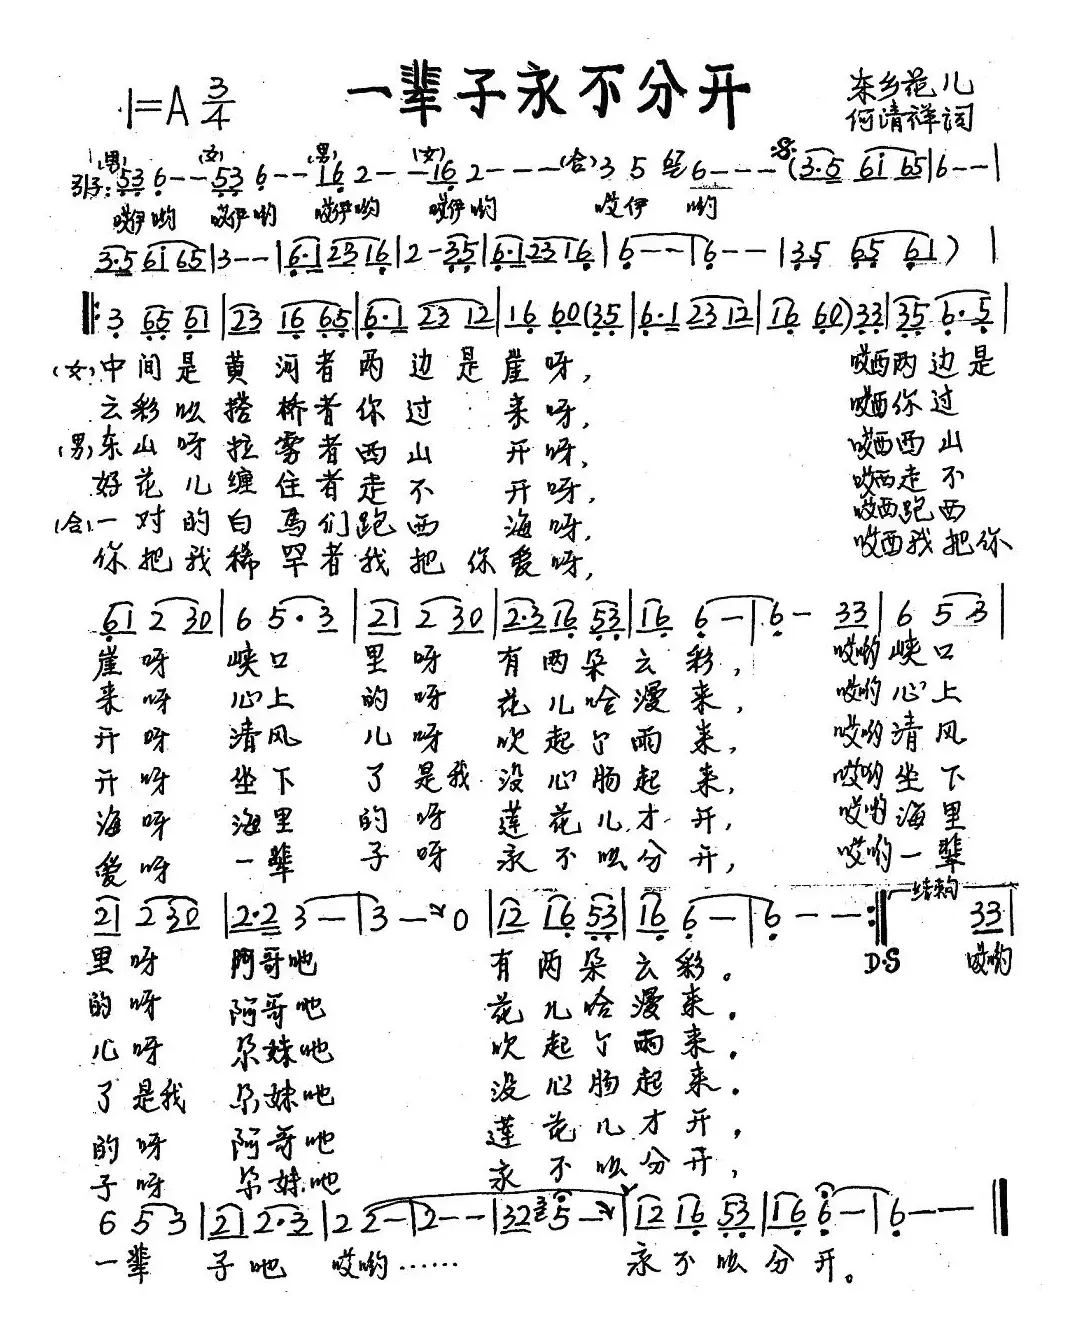 一辈子永不分开
1=A 3/4
东乡花儿
何清祥词
(男) (女) (男) (女)
引子: 53 6 - - 53 6 - - 16 2 - - 16 2 - - - (合) 3 5 6 - - - (3·5 61 65 | 6 - - |
哎伊哟 哎伊哟 哎伊哟 哎伊哟 哎伊 哟
3·5 61 65 | 3 - - | 6·1 23 16 | 2 - 35 | 6·1 23 16 | 6 - - | 6 - - | 35 65 61 ) |
‖: 3 65 61 | 23 16 65 | 6·1 23 12 | 16 60 (35 | 6·1 23 12 | 16 60) 33 | 35 6·5 |
(女) 中间是黄河者两边是崖呀, 哎西两边是
云彩吆搭桥者你过来呀, 哎西你过
(男) 东山呀拉雾者西山开呀, 哎西西山
好花儿缠住者走不开呀, 哎西走不
(合) 一对的白马们跑西海呀, 哎西跑西
你把我稀罕者我把你爱呀, 哎西我把你
61 2 30 | 6 5·3 | 21 2 30 | 2·3 16 53 | 16 6 - | 6 - 33 | 6 5 3 |
崖呀 峡口 里呀 有两朵云彩, 哎哟峡口
来呀 心上 的呀 花儿哈漫来, 哎哟心上
开呀 清风 儿呀 吹起了雨来, 哎哟清风
开呀 坐下 了是我 没心肠起来, 哎哟坐下
海呀 海里 的呀 莲花儿才开, 哎哟海里
爱呀 一辈 子呀 永不吆分开, 哎哟一辈
结束句
21 2 30 | 2·2 3 - | 3 - 0 | 12 16 53 | 16 6 - | 6 - - :‖ 33 |
里呀 阿哥吔 有两朵云彩。 D·S 哎哟
的呀 阿哥吔 花儿哈漫来。
儿呀 尕妹吔 吹起了雨来。
了是我 尕妹吔 没心肠起来。
的呀 阿哥吔 莲花儿才开,
子呀 尕妹吔 永不吆分开,
6 5 3 | 21 2·3 | 2 2 - | 2 - - | 32 3 5 - | 12 16 53 | 16 6 - | 6 - - ‖
一辈 子吔 哎哟…… 永不吆分开。